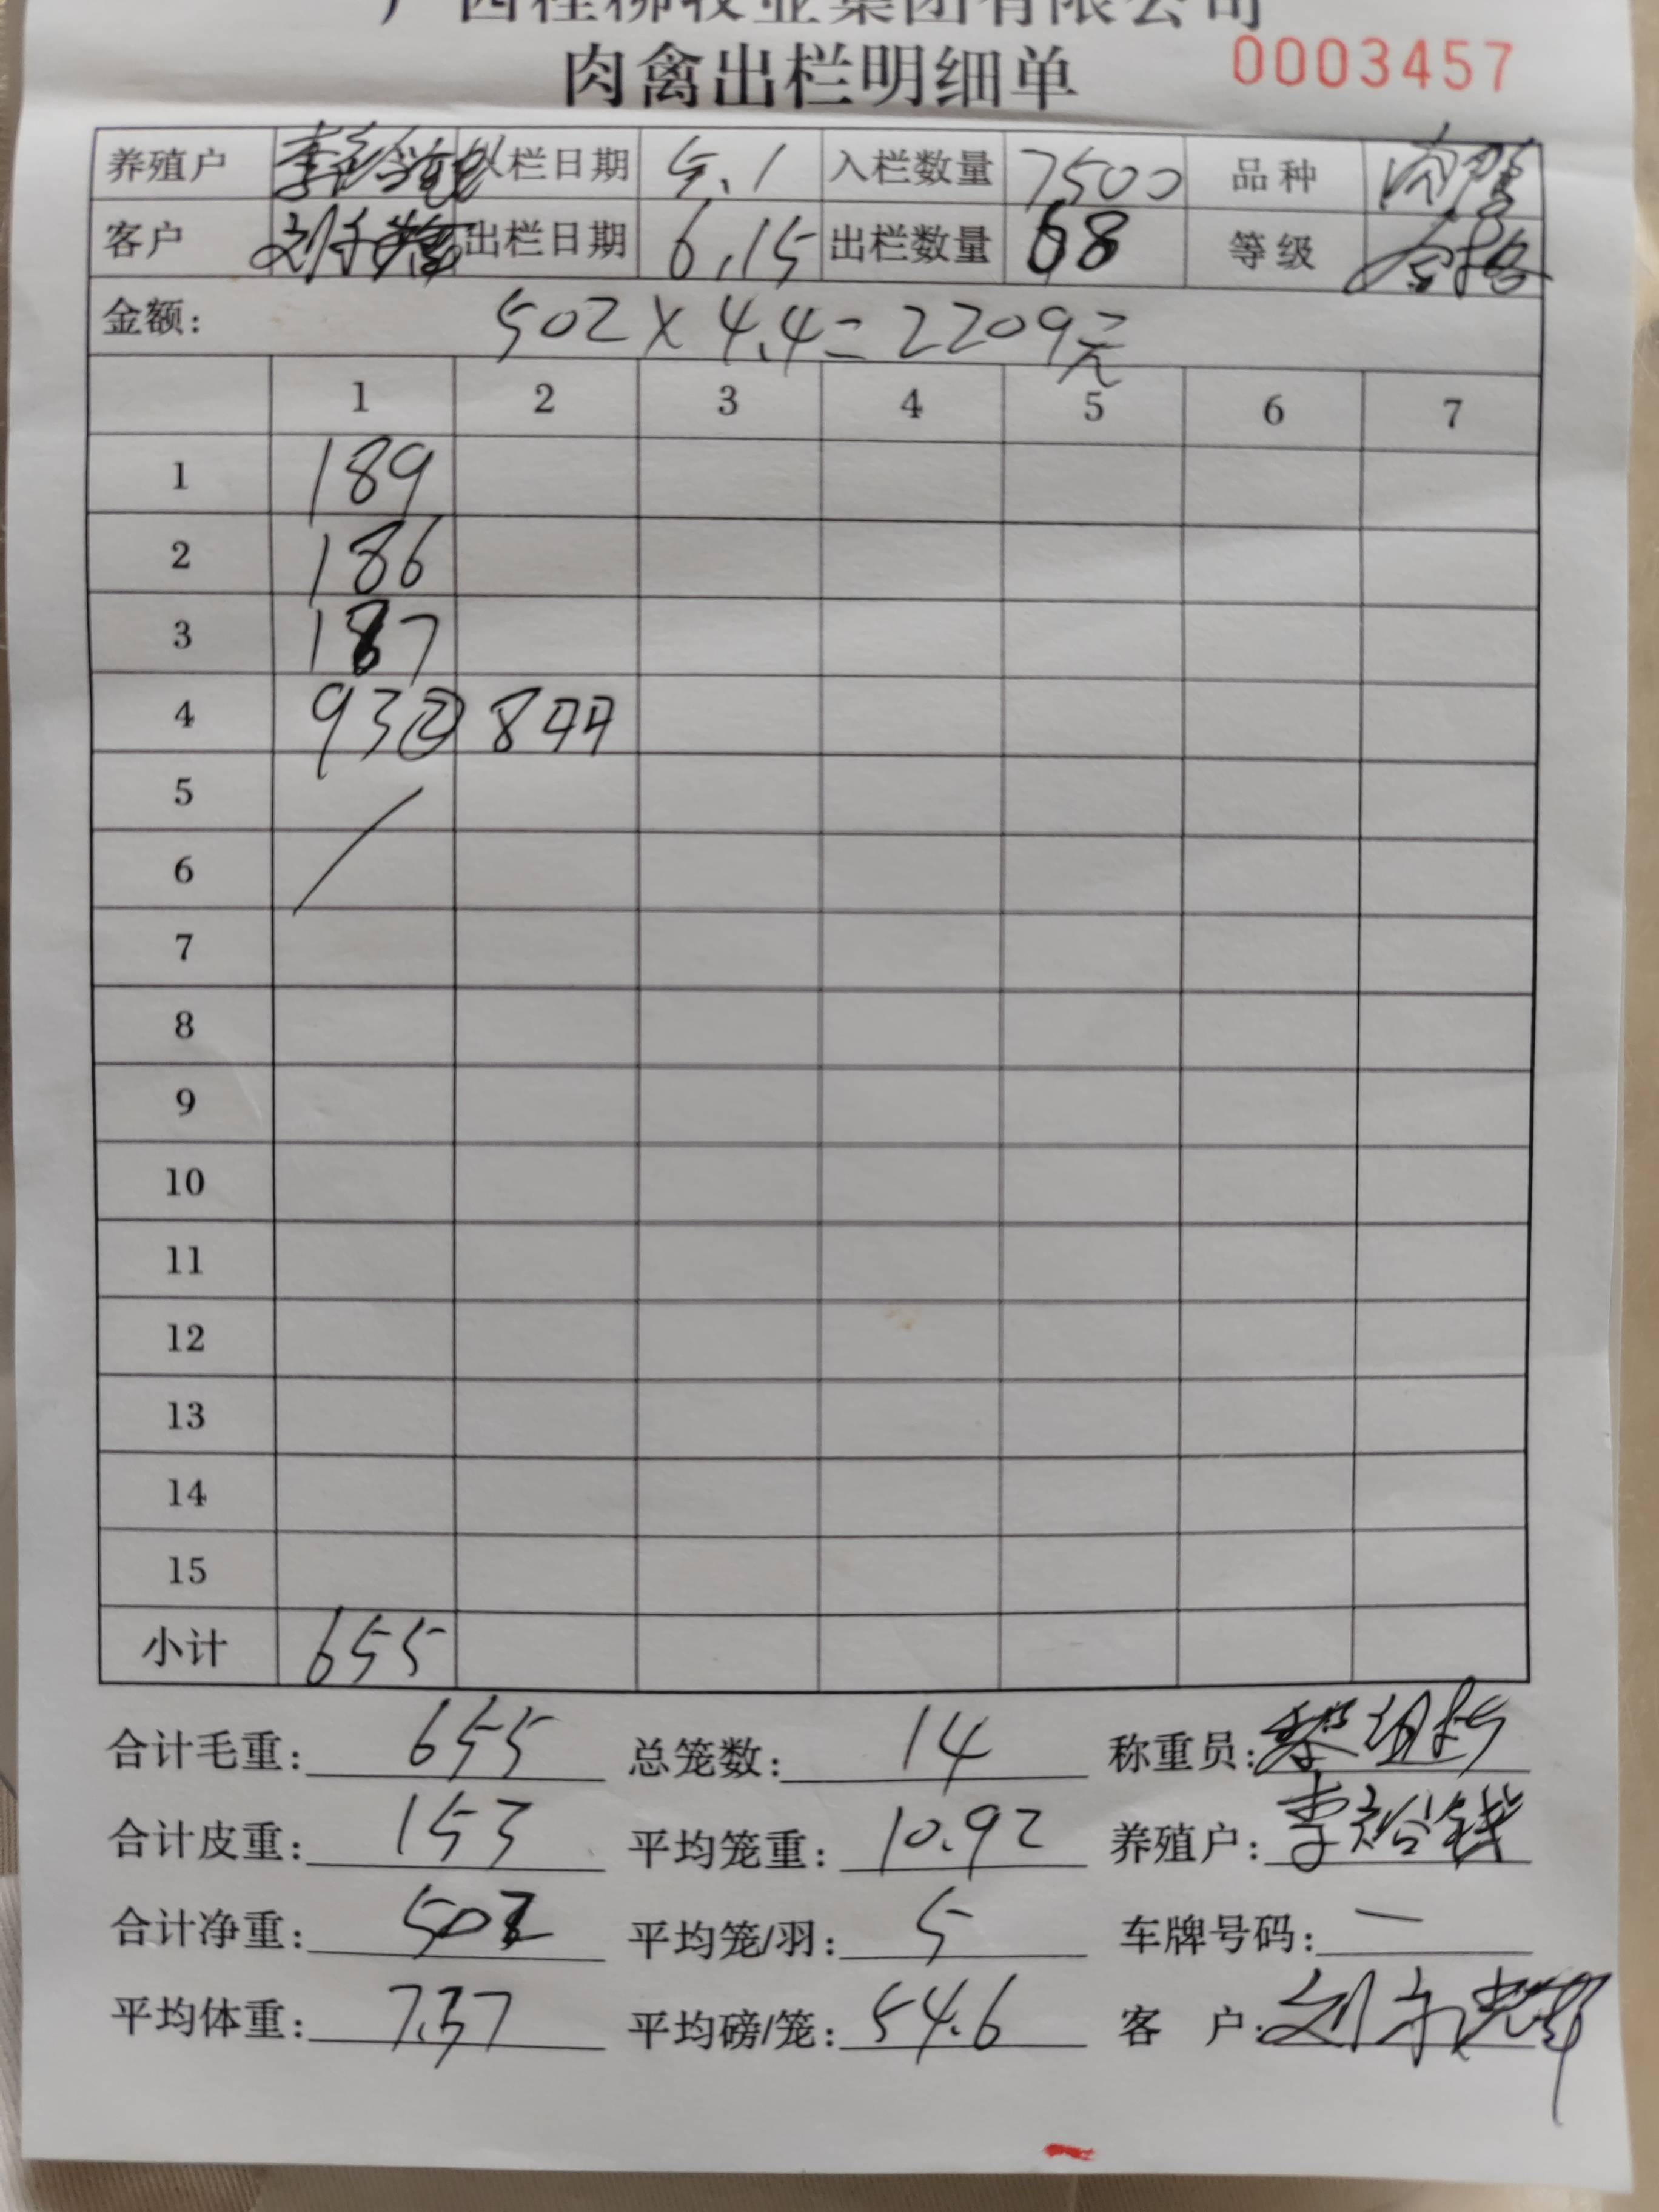 广西桂柳牧业集团有限公司
肉禽出栏明细单 0003457
养殖户 李 入栏日期 5.1 入栏数量 7500 品种 肉
客户 刘 出栏日期 6.15 出栏数量 68 等级 合格
金额: 502×4.4=2209元
1 2 3 4 5 6 7
1 189
2 186
3 187
4 93②
5
6
7
8
9
10
11
12
13
14
15
小计 655
合计毛重: 655 总笼数: 14 称重员: 黎
合计皮重: 153 平均笼重: 10.92 养殖户: 李裕钱
合计净重: 502 平均笼/羽: 5 车牌号码: 一
平均体重: 7.37 平均磅/笼: 54.6 客 户: 刘